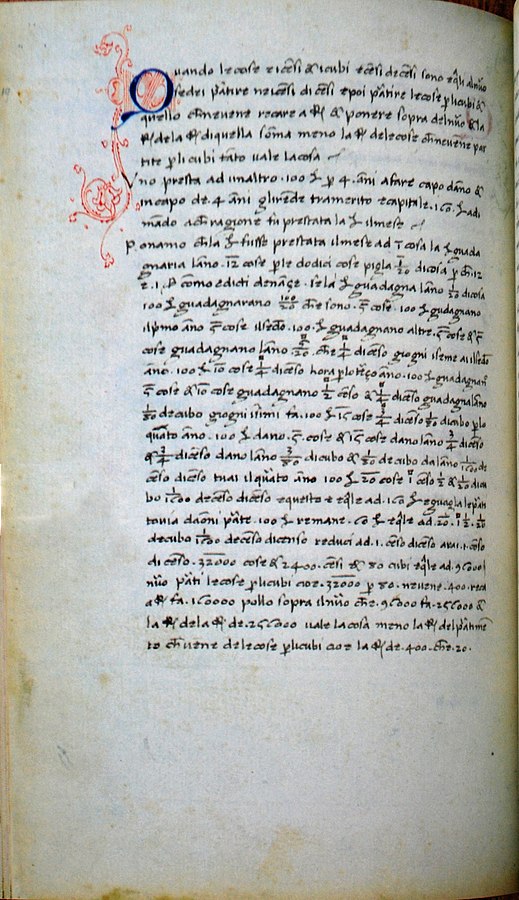 Quando le cose e i cēsi & i cubi e cēsi de cēsi sono eq̄li al nūo
se dei p̄tire ne i cēsi di cēsi e poi p̄tire le cose p̄ li cubi &
quello che nevene recare a R & ponere sopra del nūo & la
R de la R di quella sōma meno la R de le cose che nevene par
tite p̄ li cubi tāto vale la cosa
Uno presta ad un altro .100. p̄ .4. āni a fare capo dāno &
in capo de .4. āni gli rēde tra merito e capitale .160. adi
mādo a che ragione fu prestata la il mese
Ponamo che la fusse prestata il mese ad .1. cosa la guada
gnaria lāno .12. cose p̄ le dodici cose piglia 1/20 di cosa p̄ che 12
come edicti denançe se la guadagna lāno 1/20 di cosa
100 guadagnarano 100/20 che sono .5. cose .100. guadagnano
il p̄mo āno .5. cose il secōdo .100. guadagnano altre .5. cose & .5.
cose guadagnano lāno 5/20 che 1/4 di cēso giogni īseme ai il secōdo
āno .100. 10 cose 1/4 di cēso hora p̄ lo terço āno .100. guadagnan
.5. cose & 10 cose guadagnano 1/2 cēso & 1/4 di cēso guadagna lāno
1/80 de cubo giogni īsimi fa .100. 15 cose 3/4 di cēso 1/80 di cubo p̄ lo
quarto āno .100. dano .5. cose & 15 cose dano lāno 3/4 di cēso
& 3/4 di cēso dano lāno 3/80 di cubo & 1/80 de cubo da lāno 1/1600 de
cēso di cēso tu ai il quarto āno 100 20 cose 1 cēso 1/2 & 1/20 di cu
bo 1/1600 de cēso di cēso e questo e eq̄le ad .160. e guagla le parti
tra via da ōni parte .100. remane .60. eq̄le ad .20. 1 1/2 . 1/20
de cubo 1/1600 de cēso di censo reduci ad .1. cēso di cēso arai .1. cēso
di cēso .32000 cose & 2400. cēsi & 80 cubi eq̄le ad .96000
nūo parti le cose p̄ li cubi cioe .32000 p̄ 80. nevene .400. reca
a R fa .160000 pollo sopra il nūo che .96000 fa .256000 &
la R de la R de .256000 vale la cosa meno la R del partime
to che vene de le cose p̄ li cubi cioe la R de .400. che .20.